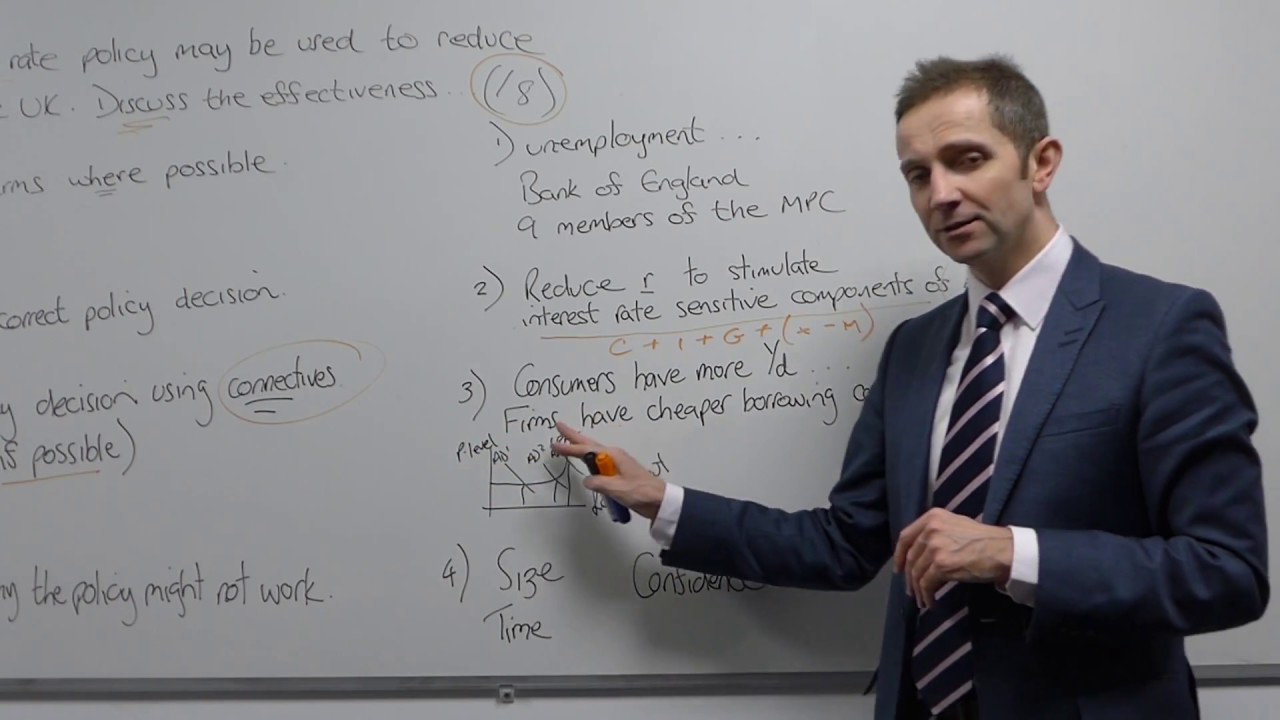 rate policy may be used to reduce
UK. Discuss the effectiveness. (/8)
where possible.
correct policy decision.
decision using connectives
is possible)
the policy might not work.
1) unemployment ...
Bank of England
9 members of the MPC
2) Reduce r to stimulate
interest rate sensitive components of
C + I + G + (x - M)
3) Consumers have more Yd ...
Firms have cheaper borrowing
P. level
AD¹ AD²
4) Size Confidence
Time